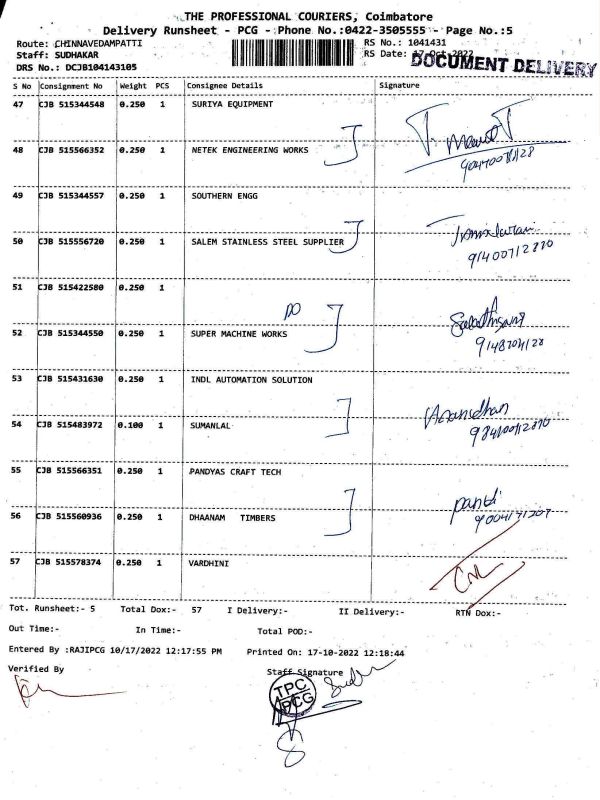 THE PROFESSIONAL COURIERS, Coimbatore
Delivery Runsheet - PCG - Phone No.:0422-3505555 - Page No.:5
Route: CHINNAVEDAMPATTI RS No.: 1041431
Staff: SUDHAKAR RS Date: 17-Oct-2022
DRS No.: DCJB104143105 DOCUMENT DELIVERY
S No Consignment No Weight PCS Consignee Details Signature
47 CJB 515344548 0.250 1 SURIYA EQUIPMENT
48 CJB 515566352 0.250 1 NETEK ENGINEERING WORKS
49 CJB 515344557 0.250 1 SOUTHERN ENGG
50 CJB 515556720 0.250 1 SALEM STAINLESS STEEL SUPPLIER
51 CJB 515422580 0.250 1
52 CJB 515344550 0.250 1 SUPER MACHINE WORKS
53 CJB 515431630 0.250 1 INDL AUTOMATION SOLUTION
54 CJB 515483972 0.100 1 SUMANLAL
55 CJB 515566351 0.250 1 PANDYAS CRAFT TECH
56 CJB 515560936 0.250 1 DHAANAM TIMBERS
57 CJB 515578374 0.250 1 VARDHINI
Tot. Runsheet:- 5 Total Dox:- 57 I Delivery:- II Delivery:- RTN Dox:-
Out Time:- In Time:- Total POD:-
Entered By :RAJIPCG 10/17/2022 12:17:55 PM Printed On: 17-10-2022 12:18:44
Verified By Staff Signature
TPC
PCG